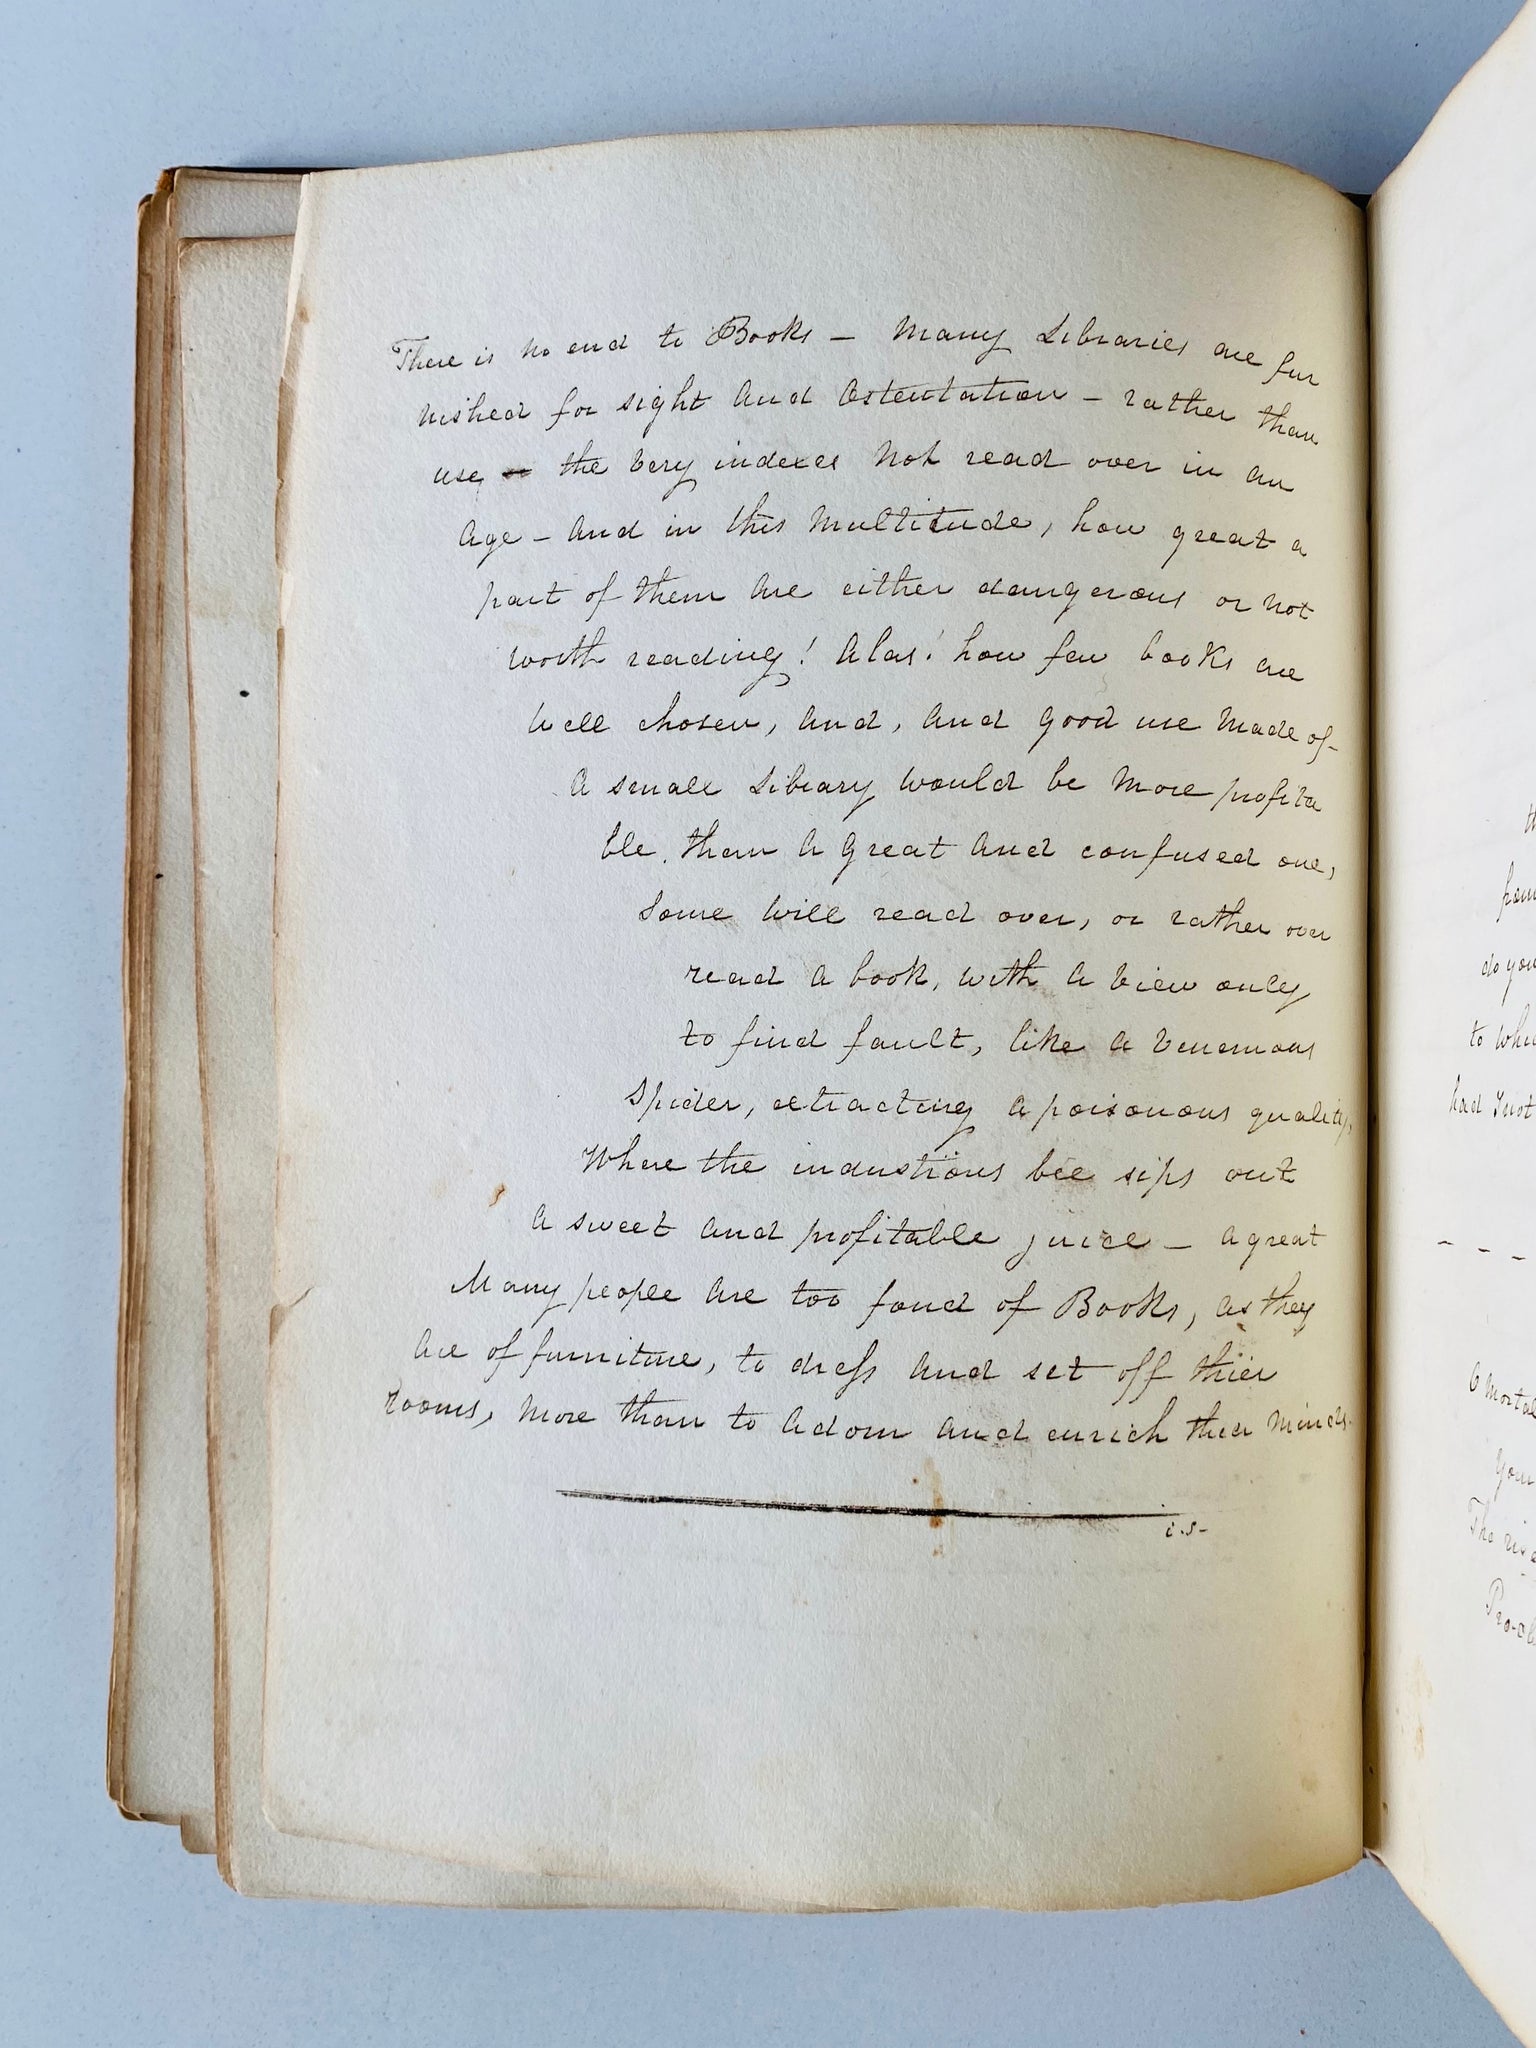 There is no end to Books – Many Libraries are fur
nished for sight and Ostentation – rather than
use – the very indexes not read over in an
age – and in this Multitude, how great a
part of them are either dangerous or not
worth reading! Alas! how few books are
well chosen, and, and good use made of –
A small Library would be more profita
ble. than a great and confused one,
Some will read over, or rather over
read a book, with a view only
to find fault, like a venemous
Spider, extracting a poisonous quality,
Where the industious bee sips out
a sweet and profitable juice – a great
Many people are too fond of Books, as they
are of furniture, to dress and set off thier
rooms, more than to adorn and enrich thier minds.
i.s–
th
do you
to whi
had I not
- - -
O Mortal
your
The rise